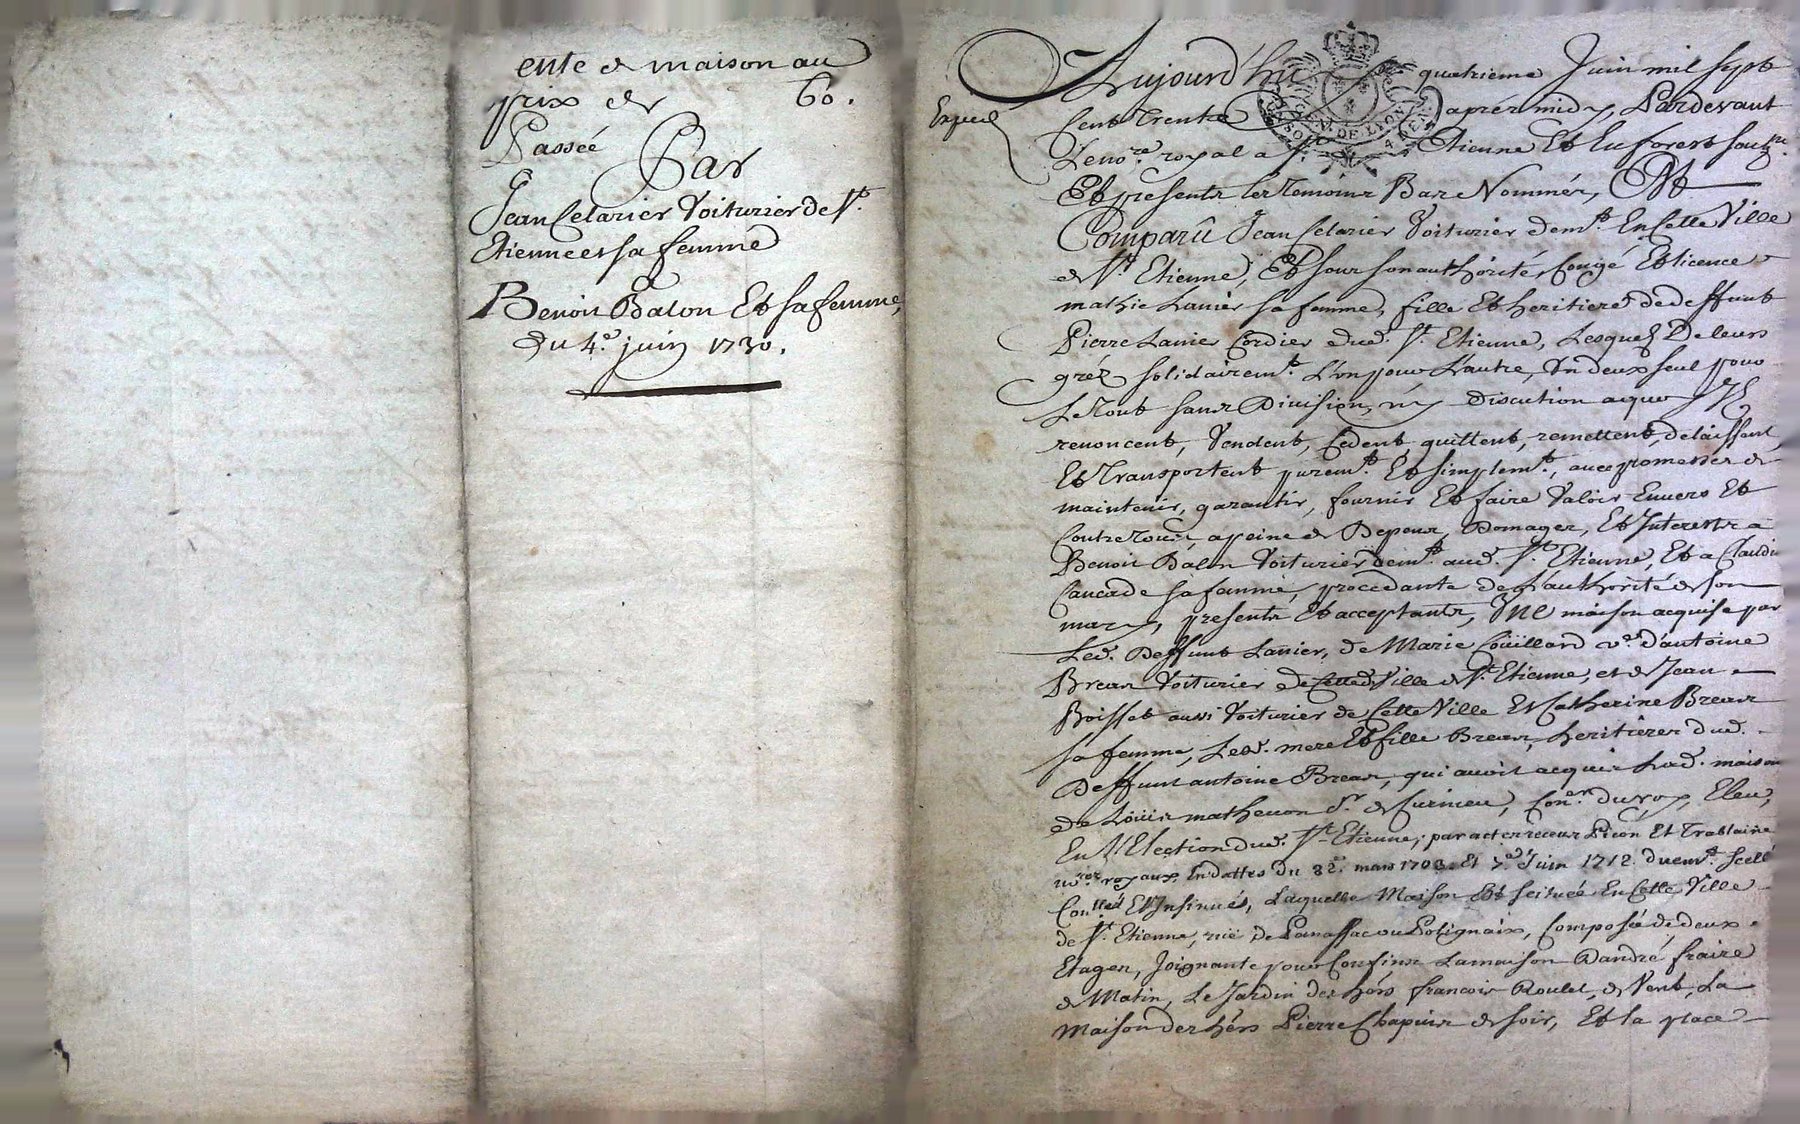 ente de maison au
prix de 60.
Passée
Par
Jean Celarier Voiturier de St.
Etienne et sa femme
a
Benoit Balon Et sa femme,
du 4.e juin 1730.
Aujourd'huy quatrieme Juin mil sept
Cent Trente aprés midy, Pardevant
Le no.re royal a St Etienne Et En forest soubz.né
Et presents les Temoins Bas Nommés, Est
Comparû Jean Celarier Voiturier dem.t En Cette Ville
de St Etienne, Et sous son authórité, Congé Et licence
mathie Lanier sa femme, fille Et heritiere de deffunt
Pierre Lanier Cordier dud. St. Etienne, Lesquelz De leurs
gréz solidairem.t L'un pour L'autre, Un deux seul pour
Le Tout sans Division, ny Discution a quoy Ils
renoncent, Vendent, Cedent quittent, remettent, delaissent,
Et Transportent purem.t Et simplem.t, avec promesses de
maintenir, garantir, fournir Et faire Valoir Envers Et
Contre Tous, a peine de Depens, Domages, Et Interests a
Benoit Balon Voiturier dem.t aud. St. Etienne, Et a Claudine
sa femme, procedante de L'authórité de son
mary, presents Et acceptants, Une maison acquise par
Led. Deffunt Lanier, de Marie Coüillard v.e d'antoine
Breas Voiturier de Cette Ville de St. Etienne, et de Jean
Boisset aussi Voiturier de Cette Ville Et Catherine Breas
sa femme, Lesd. mere Et fille Breas, heritieres dud.
Deffunt antoine Breas, qui avoit acquis Lad. maison
de Loüis mathevon Sr. de Curnieu, Con.er du roy, Eleu,
En L'Election dud. St. Etienne, par actes receus Picon Et Trablaine
no.res royaux En dattes du mars 1703. Et 7.e Juin 1712. duem.t Scellé
Con.llés Et Insinués, Laquelle Maison Est scituée En Cette Ville
de St. Etienne, rüe de Panassac ou Polignais, Composée de deux
Etages, Joignante pour Confins La maison D'andré fraire
de Matin, Le Jardin des hérs francois Roulet, de Vent, La
Maison des hérs Pierre Chapuis de soir, Et la place